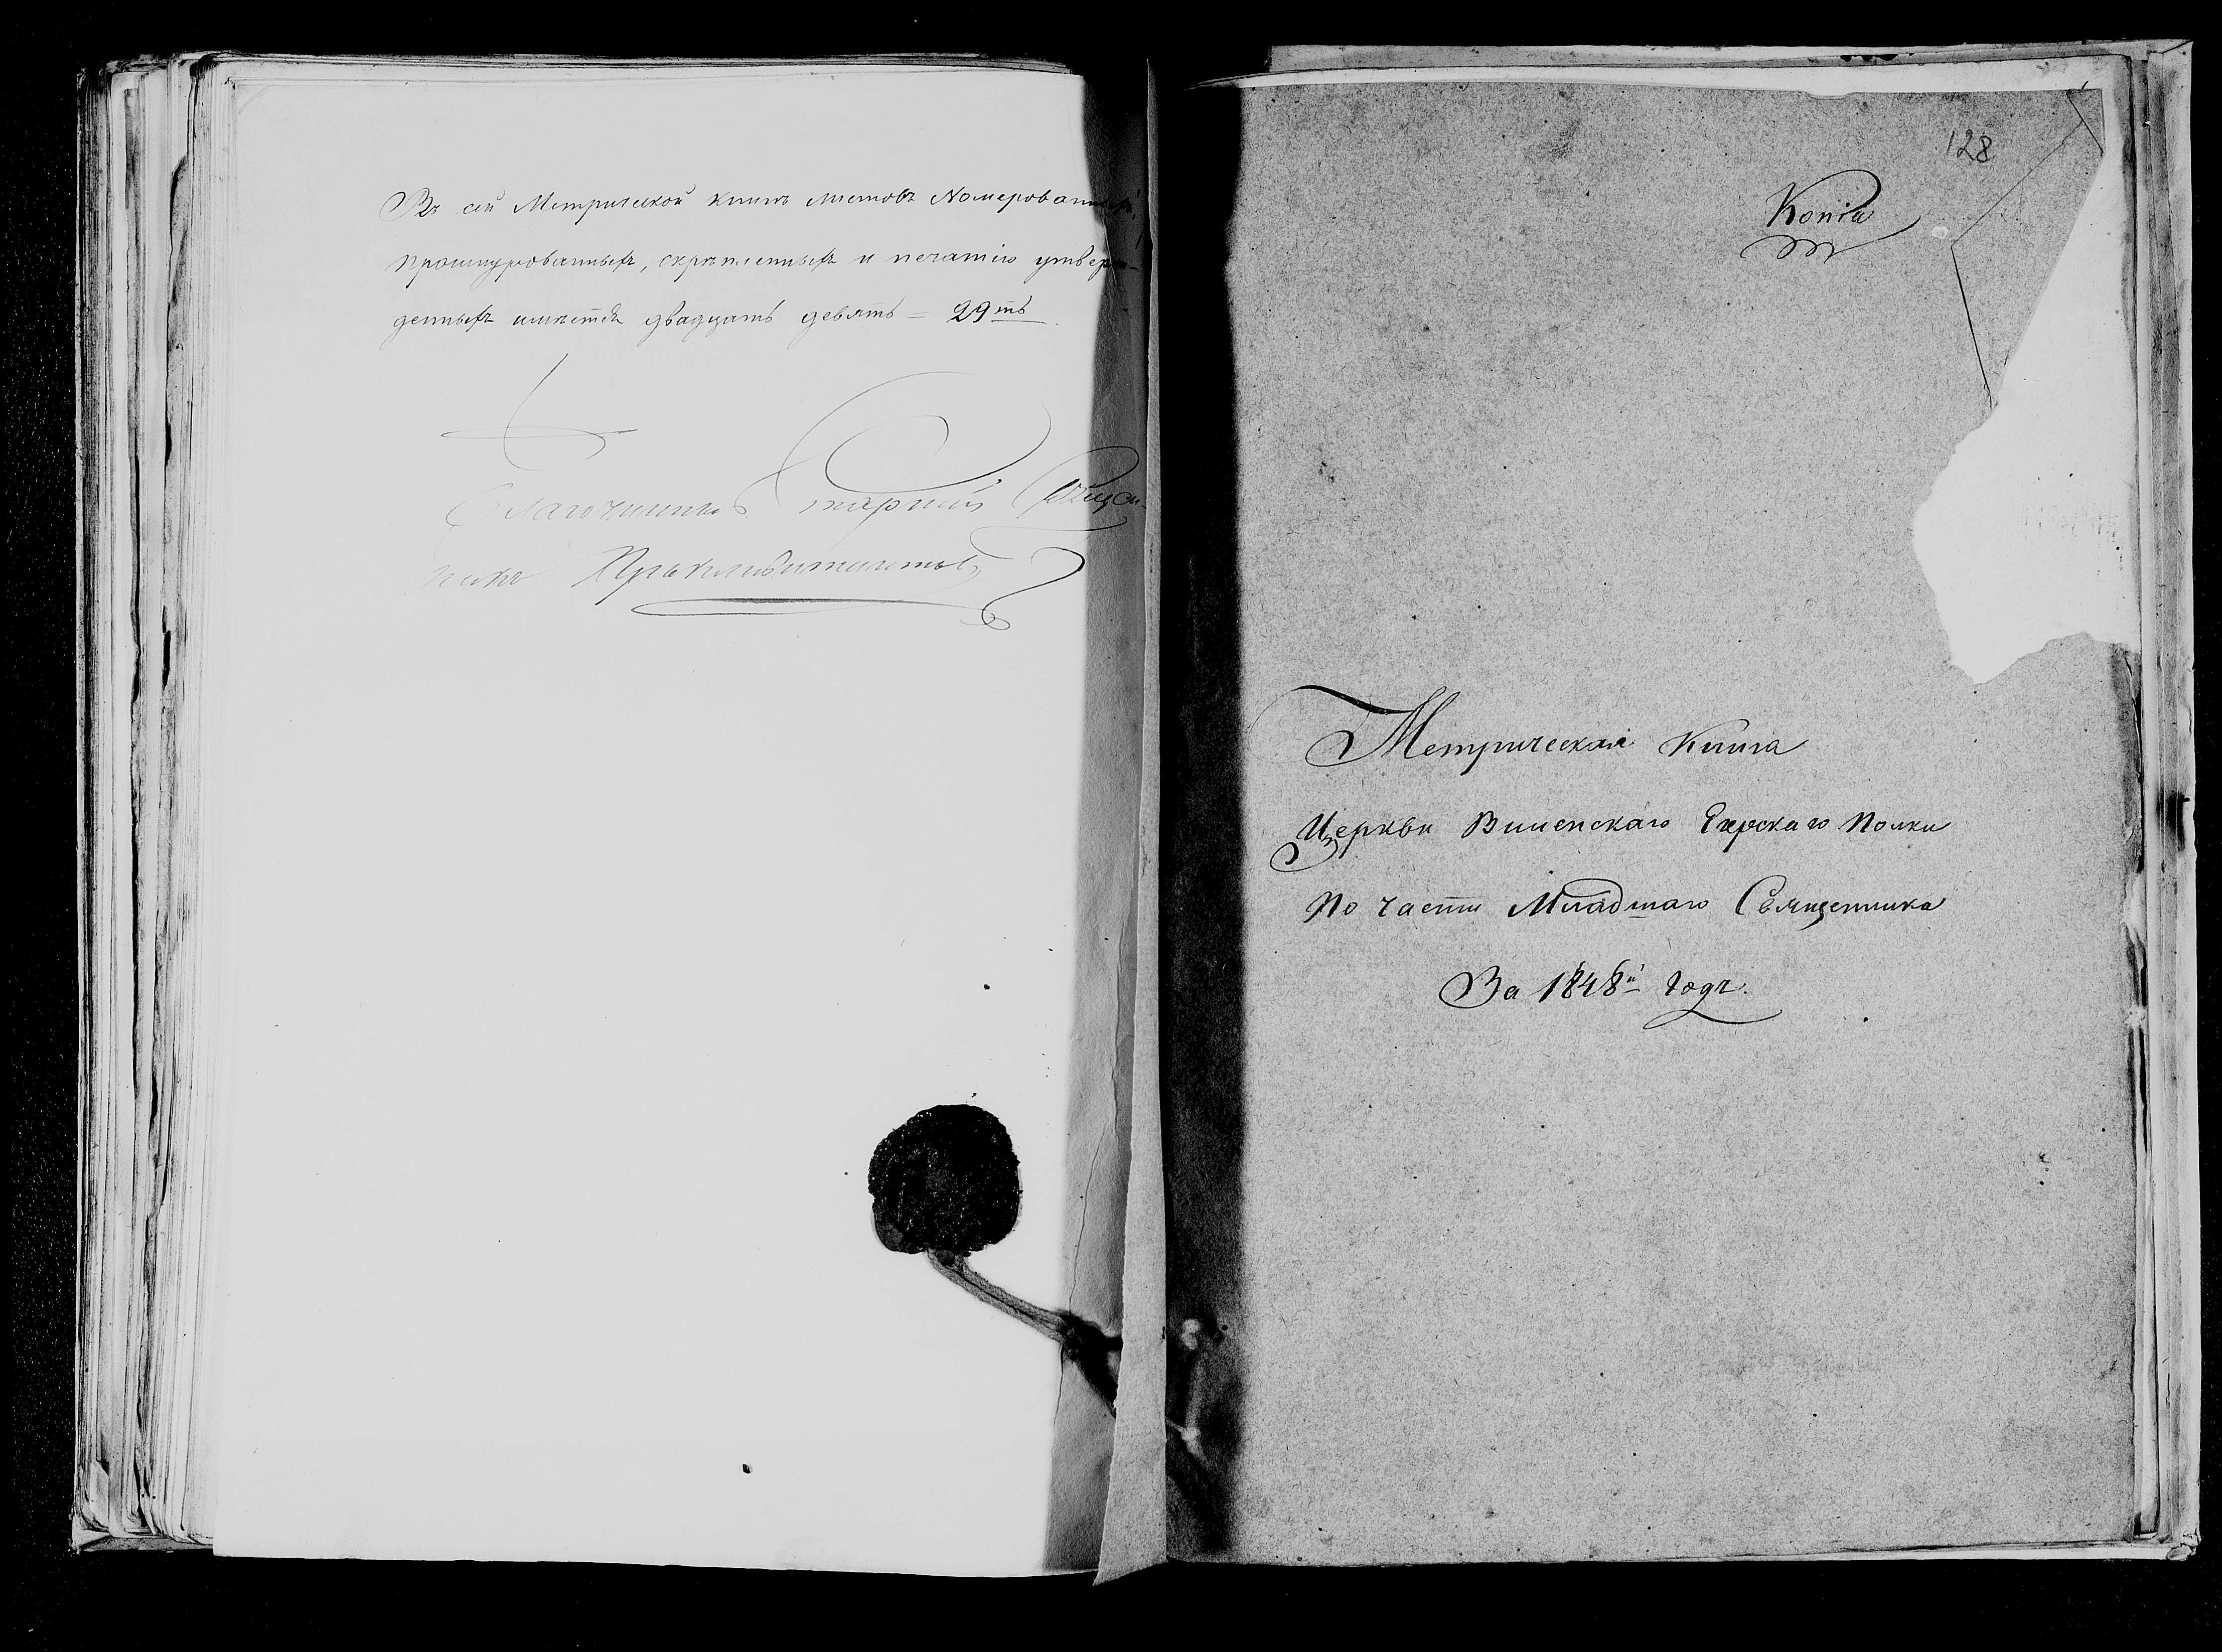 Въ сей Метрической книгѣ листовъ Номерованныхъ,
прошнурованныхъ, скрѣпленныхъ и печатію утверж-
денныхъ имѣется двадцать девять = 29ть
Благочинный
128
Копія
Метрическая Книга
Церкви Виленскаго Егерскаго Полка
По части Младшаго Священника
За 1848й годъ.